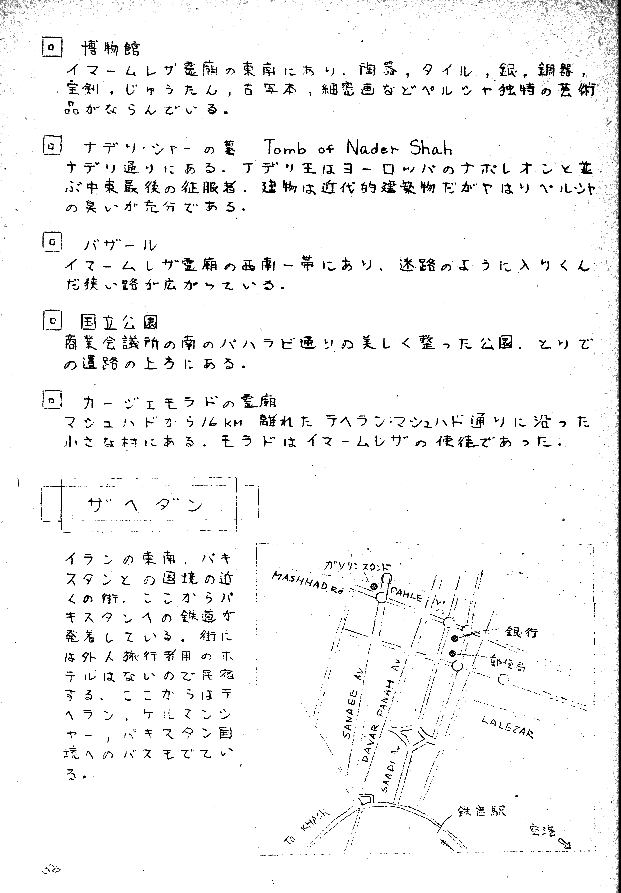 博物館
イマームレザ霊廟の東南にあり、陶器,タイル,銀,銅器,
宝剣,じゅうたん,古写本,細密画などペルシャ独特の芸術
品がならんでいる。
ナデリ・シャーの墓 Tomb of Nader Shah
ナデリ通りにある。ナデリ王はヨーロッパのナポレオンと並
ぶ中東最後の征服者。建物は近代的建築物だがやはりペルシャ
の臭いが充分である。
バザール
イマームレザ霊廟の西南一帯にあり、迷路のように入りくん
だ狭い路が広がっている。
国立公園
商業会議所の南のパハラビ通りの美しく整った公園。とりで
の道路の上方にある。
カージェモラドの霊廟
マシュハドから16KM離れたテヘラン・マシュハド通りに沿った
小さな村にある。モラドはイマームレザの使徒であった。
ザヘダン
イランの東南、パキ
スタンとの国境の近
くの街。ここからパ
キスタンへの鉄道が
発着している。街に
は外人旅行者用のホ
テルはないので民宿
する。ここからはテ
ヘラン,ケルマンシ
ャー,パキスタン国
境へのバスもでてい
る。
ガソリンスタンド
MASHHAD Rd
PAHLEVI
銀行
郵便局
SANAEE AV
DAVAR PANAH AV
SAADI
LALEZAR
To KHASH
鉄道駅
空港
50